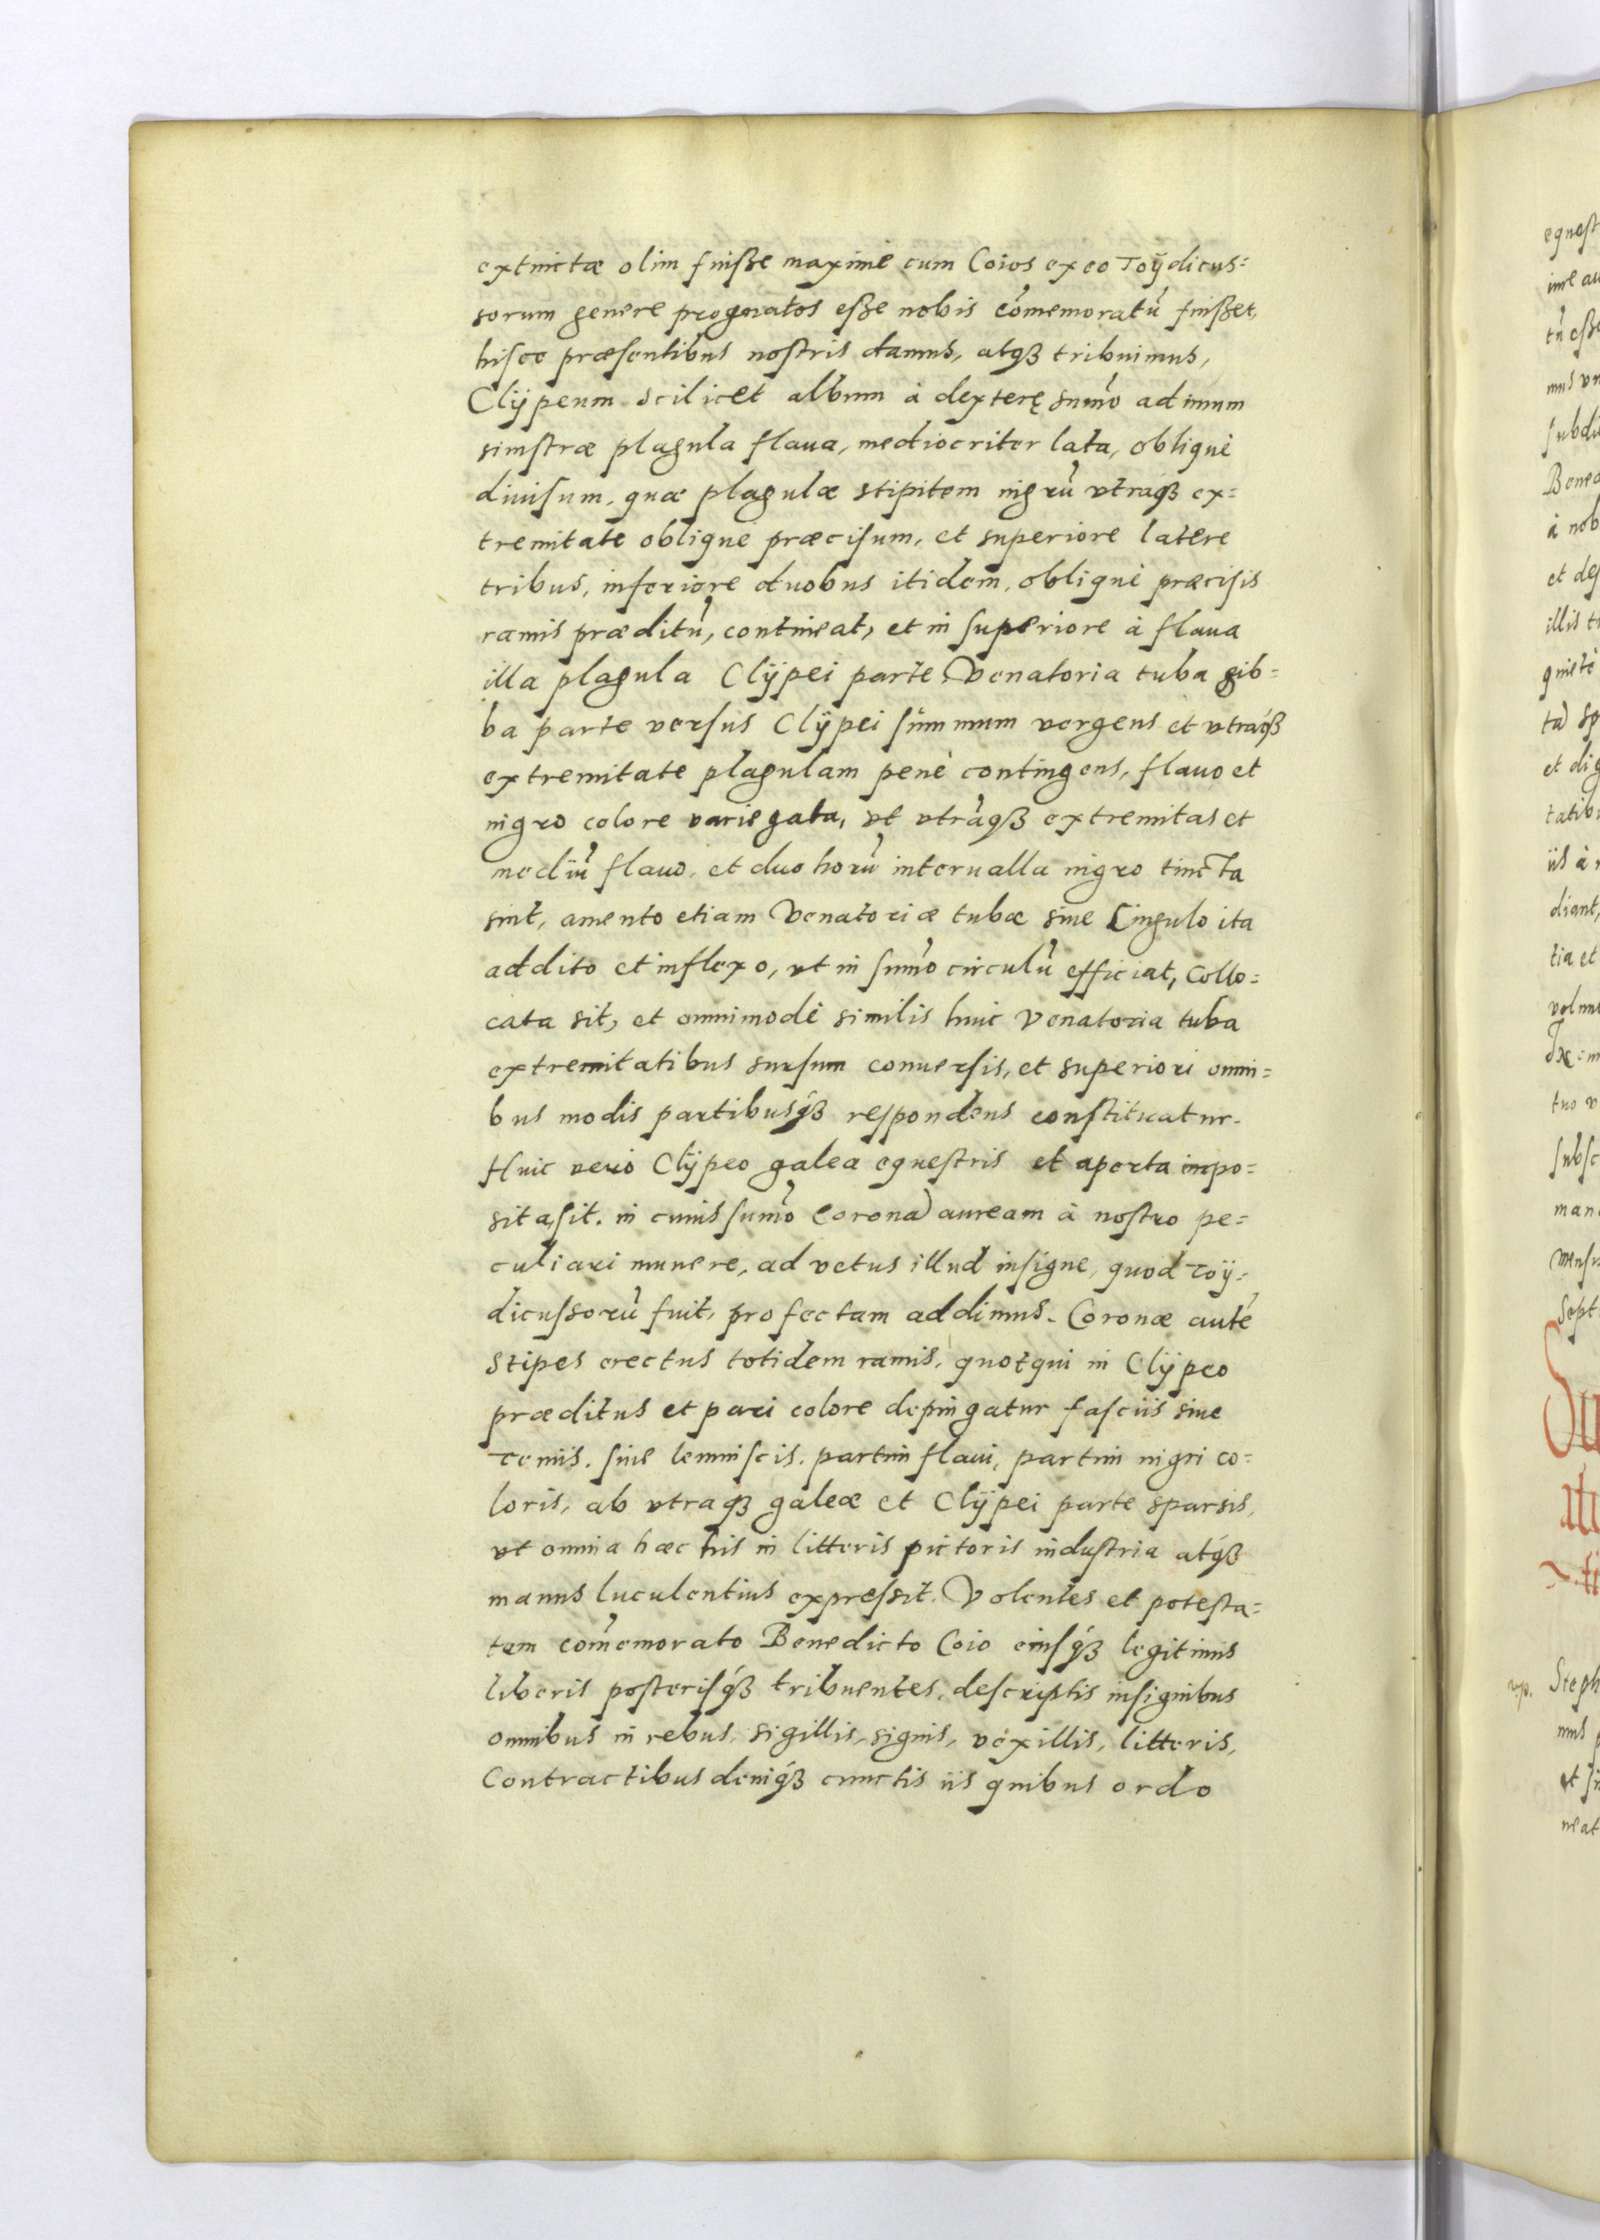 extinctæ olim fuiße maximè cum Coios ex eo Toÿdicus=
sorum genere prognatos eße nobis com̃emoratũ fuißet,
hisce præsentibus nostris damus, atqꝫ tribuimus,
Clÿpeum scilicet album à dexterę sum̃o ad imum
sinistræ plagula flaua, mediocriter lata, obliquè
diuisum, quæ plagulæ stipitem nigrũ vtráqꝫ ex=
tremitate oblique præcisum, et superiore latere
tribus, inferiore duobus itidem, obliquè præcisis
ramis præditũ, contineat, et in superiore à flaua
illa plagula Clÿpei parte, Venatoria tuba gib=
ba parte versus Clÿpei summum vergens et vtráqꝫ
extremitate plagulam penè contingens, flauo et
nigro colore variegata, vt vtraq̃ꝫ extremitas et
mediũ flauo, et duo horũ interualla nigro tincta
sint, amento etiam Venatoriæ tubæ siue Cingulo ita
addito et inflexo, vt in sum̃o circulũ efficiat, Collo=
cata sit, et omnimodè similis huic Venatoria tuba
extremitatibus sursum conuersis, et superiori omni=
bus modis partibusq́ꝫ respondens constituatur.
Huic verò Clÿpeo galea equestris et aperta impo=
sita sit. in cuius sum̃o Coronã auream à nostro pe=
culiari munere, ad vetus illud insigne, quod Toÿ=
dicussorũ fuit, profectam addimus. Coronæ auté
Stipes erectus totidem ramis, quot qui in Clÿpeo
præditus et pari colore depingatur fasciis siue
tæniis, siue lemniscis, partim flaui, partim nigri co=
loris, ab vtraqꝫ galeæ et Clÿpei parte sparsis,
vt omnia hæc his in litteris pictoris industria atq́ꝫ
manus luculentius expressit. Volentes et potesta=
tem com̃emorato Benedicto Coio eiusq́ꝫ legitimis
liberis posterisq́ꝫ tribuentes, descriptis insignibus
omnibus in rebus, sigillis, signis, vexillis, litteris,
Contractibus deniq́ꝫ cunctis iis quibus ordo